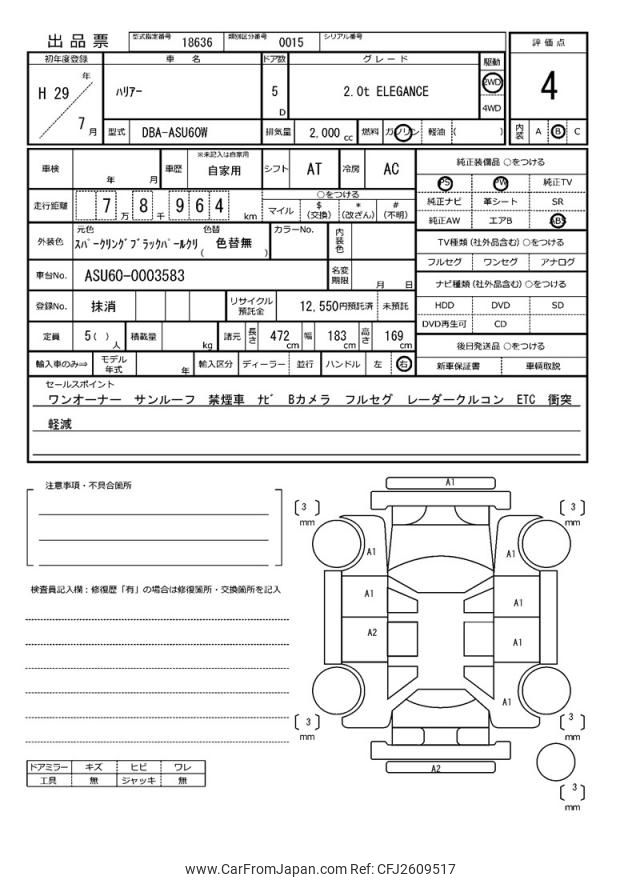 出品票 型式指定番号 18636 類別区分番号 0015 シリアル番号
初年度登録 車名 ドア数 グレード 駆動 評価点
H 29 年 7 月 ハリアー 5 D 2.0t ELEGANCE 2WD 4WD 4
型式 DBA-ASU60W 排気量 2,000 cc 燃料 ガソリン 軽油 ( ) 内装 A B C
車検 年 月 車歴 ※未記入は自家用 自家用 シフト AT 冷房 AC
走行距離 7 万 8 千 9 6 4 km ○をつける
マイル $ (交換) * (改ざん) # (不明)
外装色 元色 スパークリングブラックパールクリ 色替 ( 色替無 ) カラーNo. 内装色
車台No. ASU60-0003583 名変期限 月 日
登録No. 抹消 リサイクル預託金 12,550円預託済 未預託
定員 5( ) 人 積載量 kg 諸元 長さ 472 cm 幅 183 cm 高さ 169 cm
輸入車のみ⇒ モデル年式 年 輸入区分 ディーラー 並行 ハンドル 左 右
純正装備品 ○をつける
PS PW 純正TV
純正ナビ 革シート SR
純正AW エアB ABS
TV種類 (社外品含む) ○をつける
フルセグ ワンセグ アナログ
ナビ種類 (社外品含む) ○をつける
HDD DVD SD
DVD再生可 CD
後日発送品 ○をつける
新車保証書 車輌取説
セールスポイント
ワンオーナー サンルーフ 禁煙車 ナビ Bカメラ フルセグ レーダークルコン ETC 衝突
軽減
注意事項・不具合箇所
検査員記入欄：修復歴「有」の場合は修復箇所・交換箇所を記入
ドアミラー キズ ヒビ ワレ
工具 無 ジャッキ 無
A1
[ 3 ] mm
[ 3 ] mm
A1
A1
A1
A1
A2
A1
A1
[ 3 ] mm
[ 3 ] mm
A2
[ 3 ] mm
www.CarFromJapan.com Ref: CFJ2609517